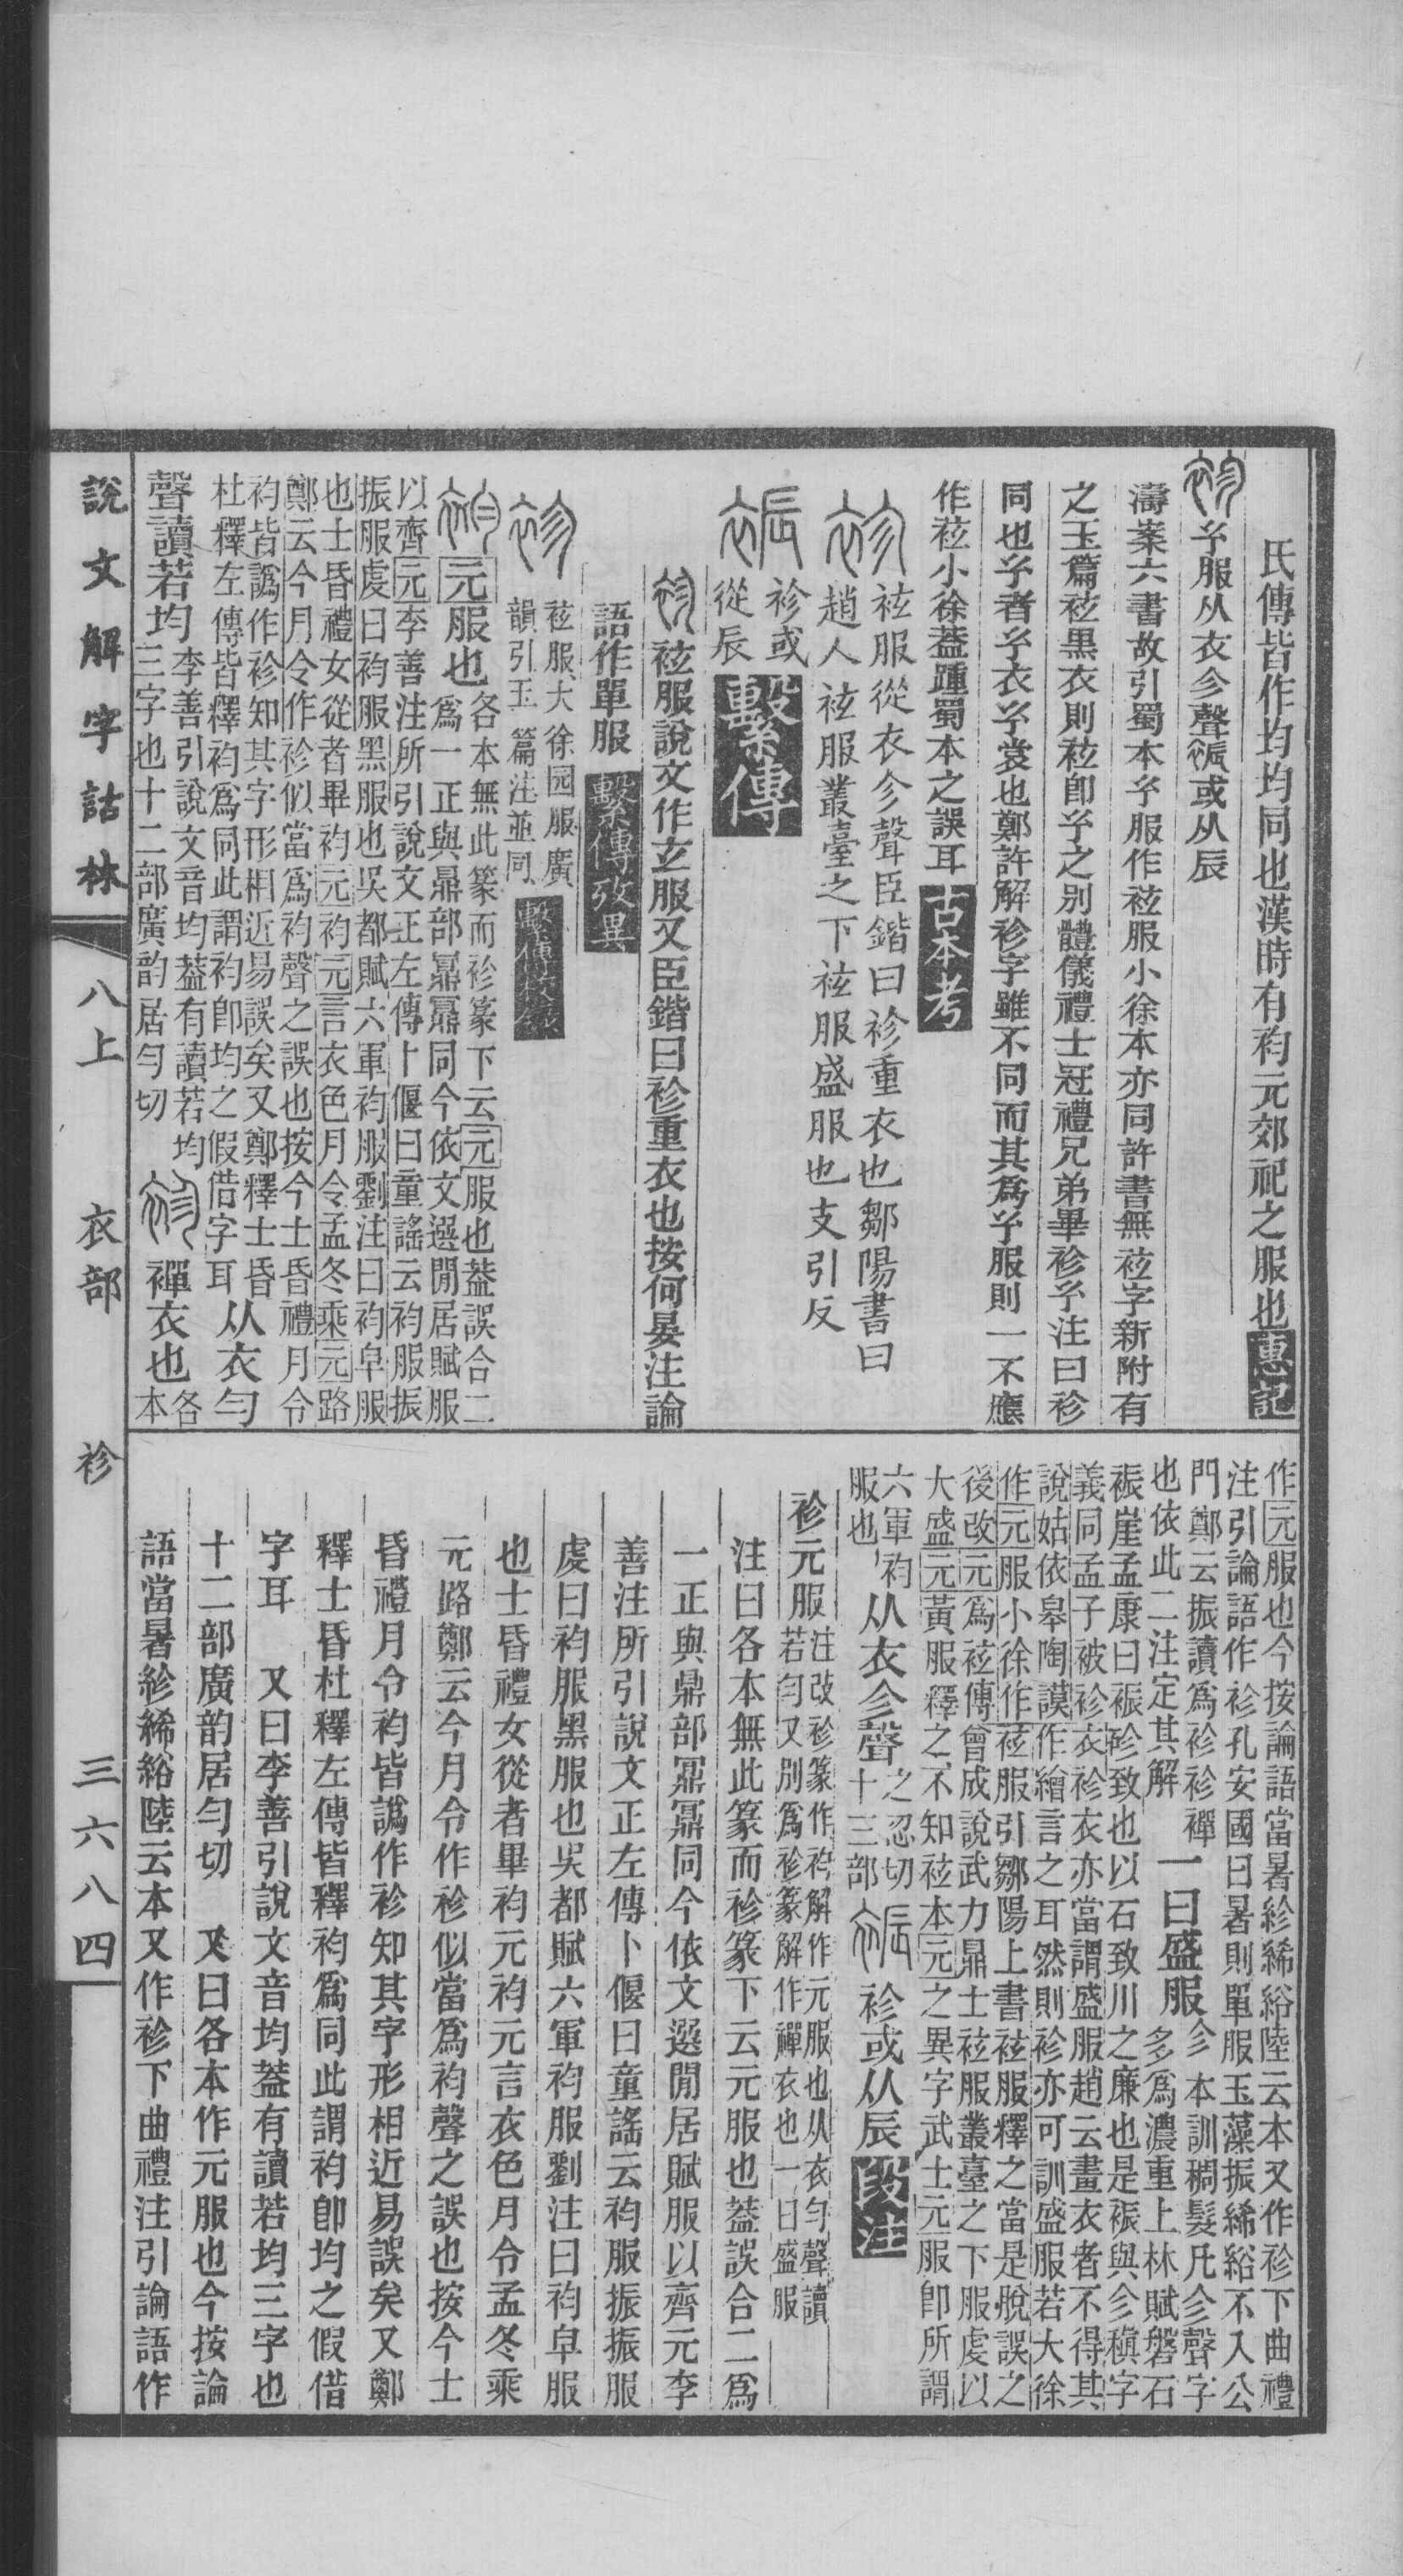 氏傳皆作均均同也漢時有袀元郊祀之服也惠記
㐱服从衣㐱聲裖或从辰
濤案六書故引蜀本𤣥服作袨服小徐本亦同許書無袨字新附有
之玉篇袨黑衣則袨卽𤣥之别體儀禮士冠禮兄弟畢袗𤣥注曰袗
同也𤣥者𤣥衣𤣥裳也鄭許解袗字雖不同而其爲𤣥服則一不應
作袨小徐葢踵蜀本之誤耳古本考
袨服從衣㐱聲臣鍇曰袗重衣也鄒陽書曰
趙人袨服叢臺之下袨服盛服也支引反
袗或
從辰
繫傳
袨服說文作玄服又臣鍇曰袗重衣也按何晏注論
語作單服繫傳攷異
袨服大徐园服廣
韻引玉篇注並同
繫傳校錄
元服也
各本無此篆而袗篆下云元服也葢誤合二
爲一正與鼎部鼏鼏同今依文選閒居賦服
以齊元李善注所引說文正左傳卜偃曰童謠云袀服振
振服虔曰袀服黑服也吳都賦六軍袀服劉注曰袀皁服
也士昏禮女從者畢袀元袀元言衣色月令孟冬乘元路
鄭云今月令作袗似當爲袀聲之誤也按今士昏禮月令
袀皆譌作袗知其字形相近易誤矣又鄭釋士昏
杜釋左傳皆釋袀爲同此謂袀卽均之假借字耳
从衣勻
聲讀若均
李善引說文音均葢有讀若均
三字也十二部廣韵居勻切
襌衣也
各
本
說文解字詁林
八上
衣部
袗
三六八四
作元服也今按論語當暑紾絺綌陸云本又作袗下曲禮
注引論語作袗孔安國曰暑則單服玉藻振絺綌不入公
門鄭云振讀爲袗袗襌
也依此二注定其解
一曰盛服
㐱本訓稠髮凡㐱聲字
多爲濃重上林賦磐石
裖崖孟康曰裖袗致也以石致川之廉也是裖與㐱稹字
義同孟子被袗衣袗衣亦當謂盛服趙云畫衣者不得其
說姑依皋陶謨作繪言之耳然則袗亦可訓盛服若大徐
作元服小徐作袨服引鄒陽上書袨服釋之當是脫誤之
後改元爲袨傳曾成說武力鼎士袨服叢臺之下服虔以
大盛元黃服釋之不知袨本元之異字武士元服卽所謂
六軍袀
服也
从衣㐱聲
之忍切
十三部
袗或从辰段注
袗元服
注改袗篆作袀解作元服也从衣勻聲讀
若勻又別爲袗篆解作襌衣也一曰盛服
注曰各本無此篆而袗篆下云元服也葢誤合二爲
一正與鼎部鼏鼏同今依文選閒居賦服以齊元李
善注所引說文正左傳卜偃曰童謠云袀服振振服
虔曰袀服黑服也吳都賦六軍袀服劉注曰袀皁服
也士昏禮女從者畢袀元袀元言衣色月令孟冬乘
元路鄭云今月令作袗似當爲袀聲之誤也按今士
昏禮月令袀皆譌作袗知其字形相近易誤矣又鄭
釋士昏杜釋左傳皆釋袀爲同此謂袀卽均之假借
字耳　又曰李善引說文音均葢有讀若均三字也
十二部廣韵居勻切　又曰各本作元服也今按論
語當暑紾絺綌陸云本又作袗下曲禮注引論語作